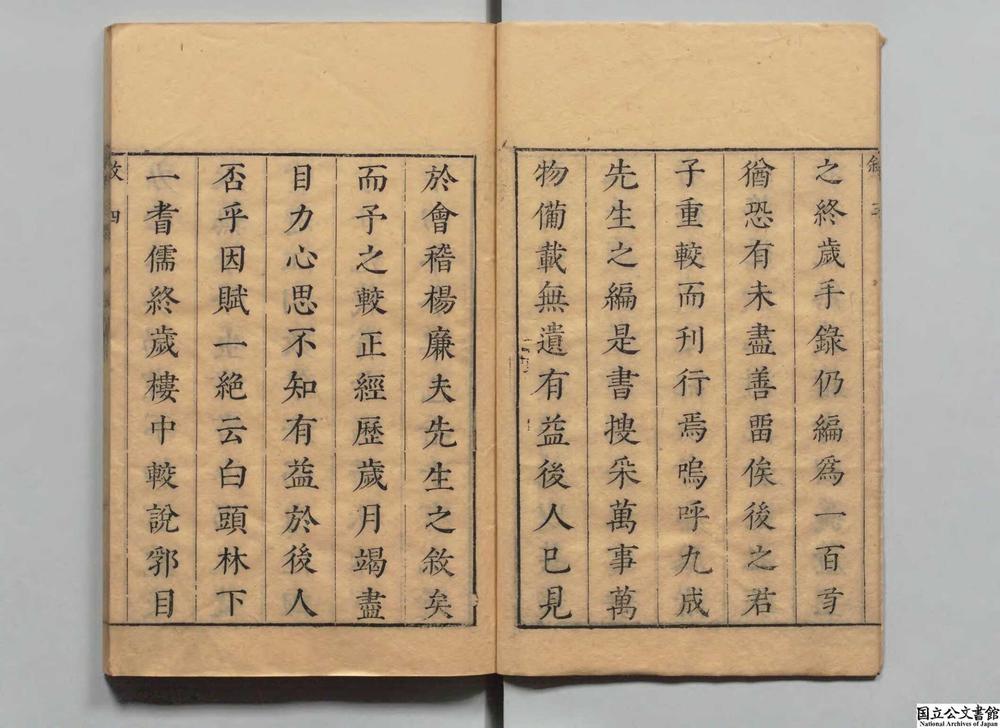 之終歲手錄仍編爲一百㢧
猶恐有未盡善畱俟後之君
子重較而刊行焉嗚呼九成
先生之編是書搜采萬事萬
物備載無遺有益後人已見
於會稽楊廉夫先生之敘矣
而予之較正經歷歲月竭盡
目力心思不知有益於後人
否乎因賦一絕云白頭林下
一耆儒終歲樓中較說郛目
四
国立公文書館
National Archives of Japan